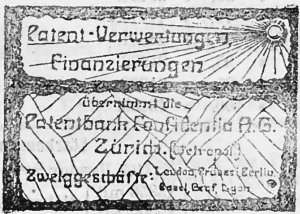 Patent-Verwertungen,
Finanzierungen
übernimmt die
Patentbank Confidentia A.G.
Zürich. (Metropol)
Zweiggeschäfte: London, Berlin,
Basel, Genf, Lyon